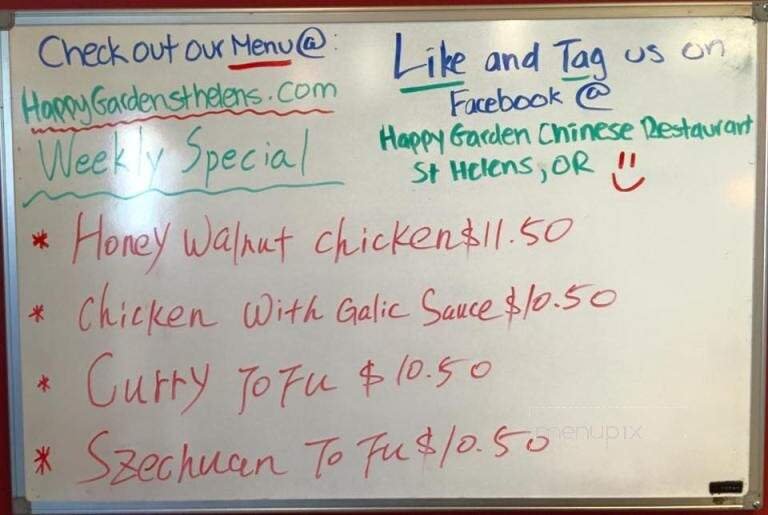 Check out our Menu @:
HappyGardensthelens.com
Weekly Special
Like and Tag us on
Facebook @
Happy Garden Chinese Restaurant
St Helens, OR
* Honey Walnut chicken $11.50
* Chicken With Galic Sauce $10.50
* Curry ToFu $10.50
* Szechuan To Fu $10.50
menupix